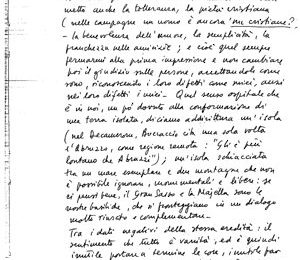 metto anche la tolleranza, la pietà cristiana
(nelle campagne un uomo è ancora "un cristiano"?
- la benevolenza dell'umore, la semplicità, la
franchezza nelle amicizie; e cioè quel sempre
fermarmi alla prima impressione e non cambiare
poi il giudizio sulle persone, accettandole come
sono, riconoscendo i loro difetti come miei, anzi
nei loro difetti i miei - Quel senso ospitale che
è in noi, un po' dovuto alla conformazione di
una terra isolata, diciamo addirittura un'isola
(nel Decamerone, Boccaccio cita una sola volta
l'Abruzzo, come regione remota: "Gli è più
lontano che Abruzzi"); un'isola schiacciata
tra un mare esemplare e due montagne che non
è possibile ignorare, monumentali e libere: se
ci pensi bene, il Gran Sasso e la Majella sono le
nostre basiliche, che si fronteggiano in un dialogo
molto riuscito e complementare -
Tra i dati negativi della stessa eredità: il
sentimento che tutto è vanità, ed è quindi
inutile portare a termine le cose, inutile far